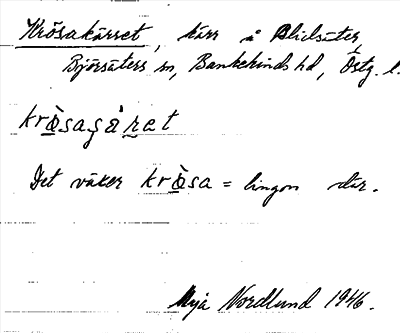 Krösakärret, kärr å Blidsäter,
Björsäters sn, Bankekinds hd, Östg. l.
krö̀sagår̲et
Det växer krö̀sa = lingon där.
Maja Nordlund 1946.